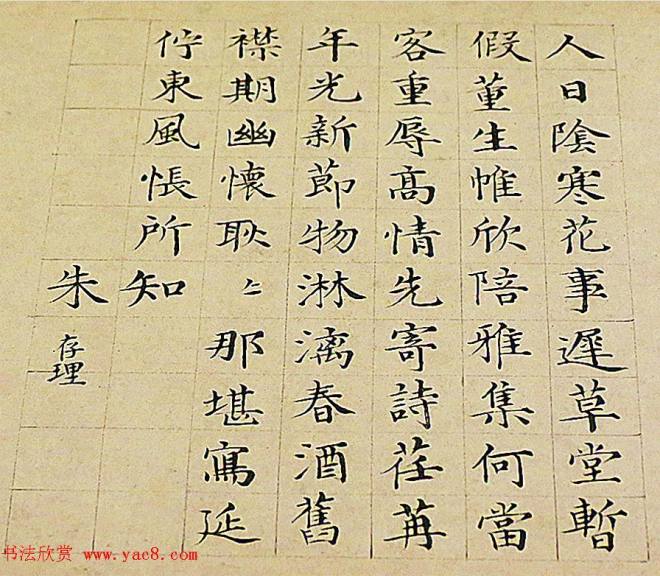 人日陰寒花事遲草堂暫
假董生帷欣陪雅集何當
客重辱髙情先寄詩荏苒
年光新節物淋漓春酒舊
襟期幽懷耿〻那堪寫延
佇東風悵所知
朱存理
书法欣赏 www.yac8.com